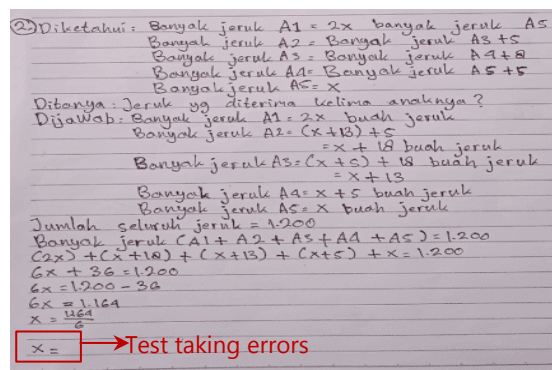 2. Diketahui: Banyak jeruk A1 = 2x banyak jeruk A5
Banyak jeruk A2 = Banyak jeruk A3 + 5
Banyak jeruk A3 = Banyak jeruk A4 + 8
Banyak jeruk A4 = Banyak jeruk A5 + 5
Banyak jeruk A5 = x
Ditanya: Jeruk yg diterima kelima anaknya?
Dijawab: Banyak jeruk A1 = 2x buah jeruk
Banyak jeruk A2 = (x + 13) + 5
= x + 18 buah jeruk
Banyak jeruk A3 = (x + 5) + 18 buah jeruk
= x + 13
Banyak jeruk A4 = x + 5 buah jeruk
Banyak jeruk A5 = x buah jeruk
Jumlah seluruh jeruk = 1.200
Banyak jeruk (A1 + A2 + A3 + A4 + A5) = 1.200
(2x) + (x + 18) + (x + 13) + (x + 5) + x = 1.200
6x + 36 = 1.200
6x = 1.200 - 36
6x = 1.164
x = 1164/6
x = Test taking errors